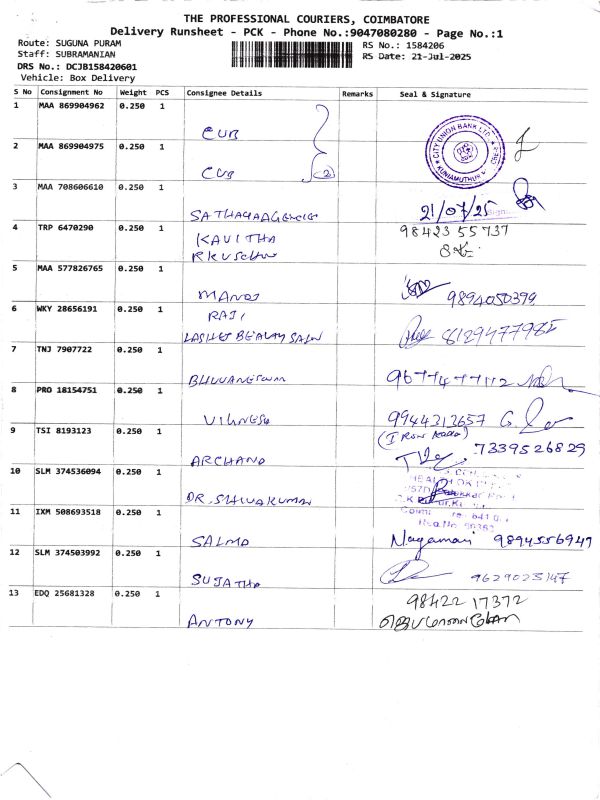 THE PROFESSIONAL COURIERS, COIMBATORE
Delivery Runsheet - PCK - Phone No.:9047080280 - Page No.:1
Route: SUGUNA PURAM
Staff: SUBRAMANIAN
DRS No.: DCJB158420601
Vehicle: Box Delivery
RS No.: 1584206
RS Date: 21-Jul-2025
S No Consignment No Weight PCS Consignee Details Remarks Seal & Signature
1 MAA 869904962 0.250 1
CUB
CITY UNION BANK LTD
KUNIAMUTHUR
2 MAA 869904975 0.250 1
CUB (2)
3 MAA 708606610 0.250 1
21/07/25
4 TRP 6470290 0.250 1
KAVITHA
98423 55737
5 MAA 577826765 0.250 1
MANOJ
9894050399
6 WKY 28656191 0.250 1
RAJI
8129477985
7 TNJ 7907722 0.250 1
BHUVANESWARI
9677477112
8 PRO 18154751 0.250 1
VIGNESH
9944313657
9 TSI 8193123 0.250 1
ARCHANA
7339526829
10 SLM 374536094 0.250 1
DR. SHIVAKUMAR
11 IXM 508693518 0.250 1
SALMA
Nagamani 9894556947
12 SLM 374503992 0.250 1
SUJATHA
9629023147
13 EDQ 25681328 0.250 1
98422 17372
ANTONY